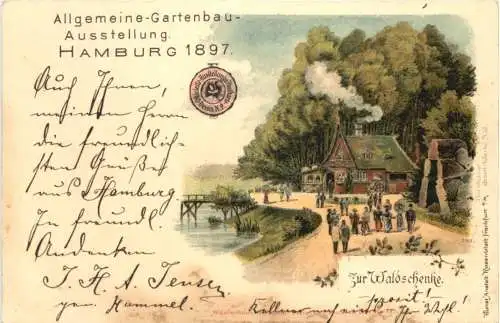 Allgemeine-Gartenbau-
Ausstellung.
HAMBURG 1897.
Auch Ihnen,
meinem Herrn
die freundlich-
sten Grüße
aus Hamburg
In freundl.
Andenken
J. H. A. Jensen
gen. Hammel.
Zur Waldschenke.
Prosit!
Kellner noch ein